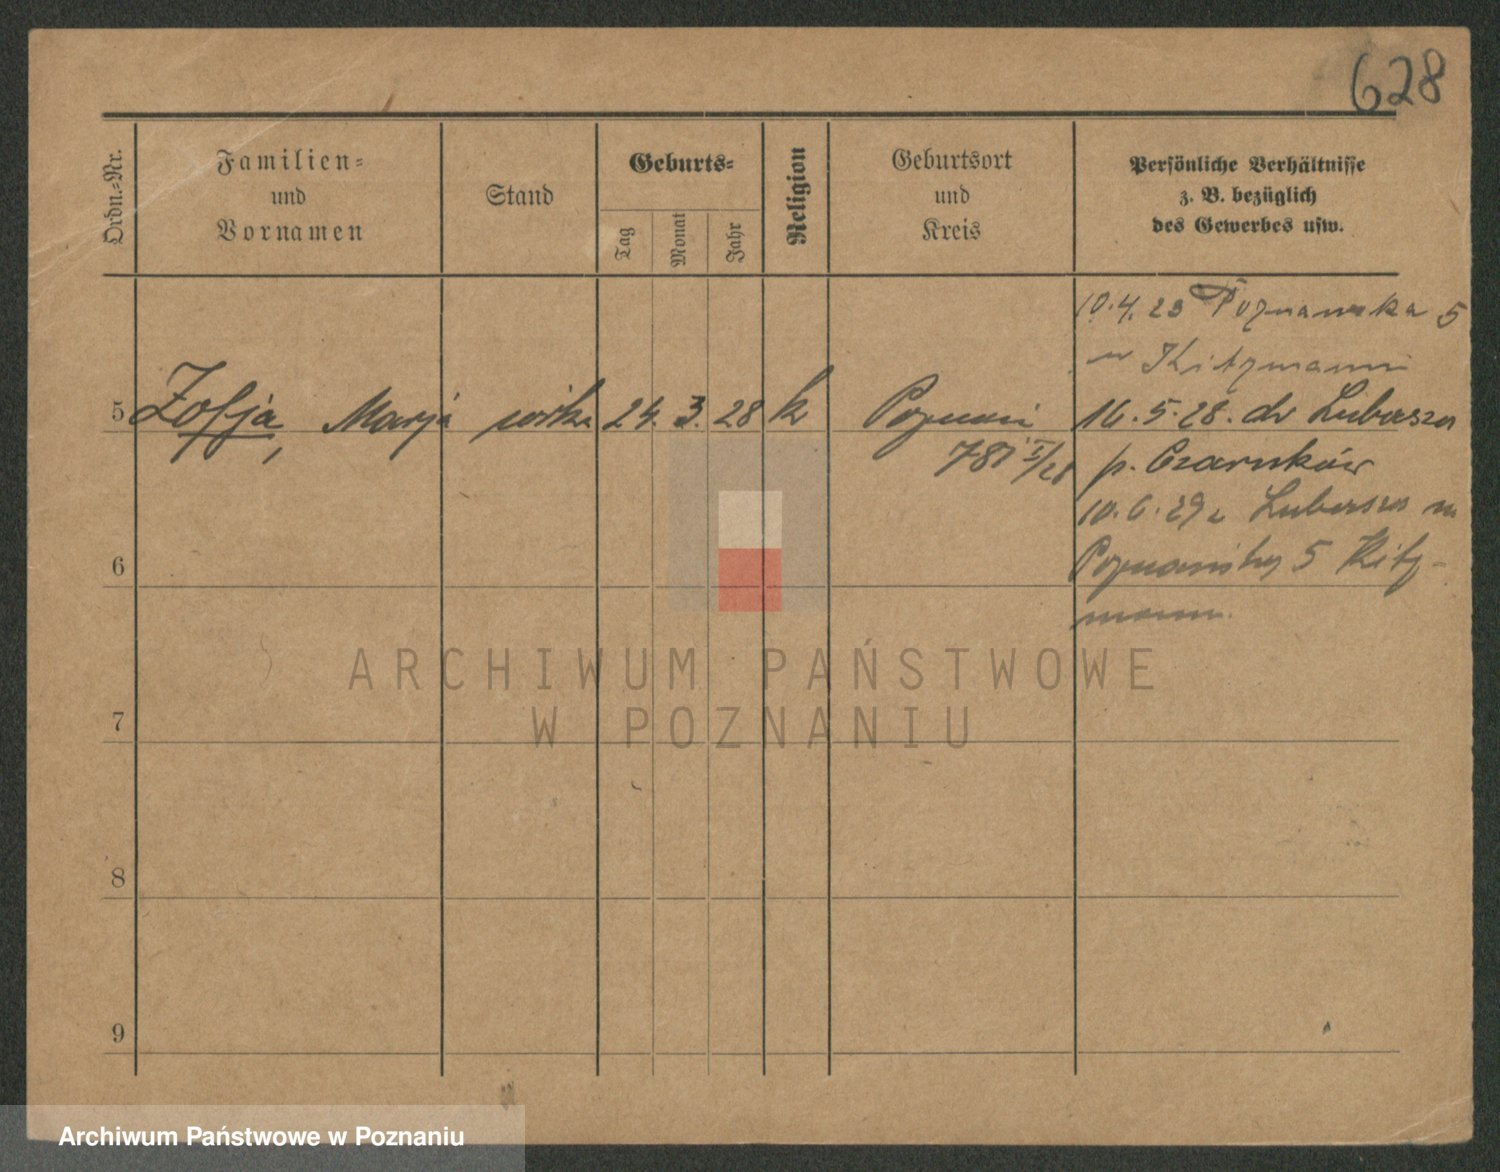 628
Ordn.-Nr.
Familien-
und
Vornamen
Stand
Geburts-
Tag
Monat
Jahr
Religion
Geburtsort
und
Kreis
Persönliche Verhältnisse
z. B. bezüglich
des Gewerbes usw.
5 Zofja, Marja córka 24. 3. 28 k Poznań
10.4.28 Poznańska 5
Kitzmann
16.5.28. do Lubasza
p. Czarnków
10.6.29 z Lubasza
Poznańska 5 Kitz-
mann.
6
7
8
9
ARCHIWUM PAŃSTWOWE
W POZNANIU
Archiwum Państwowe w Poznaniu